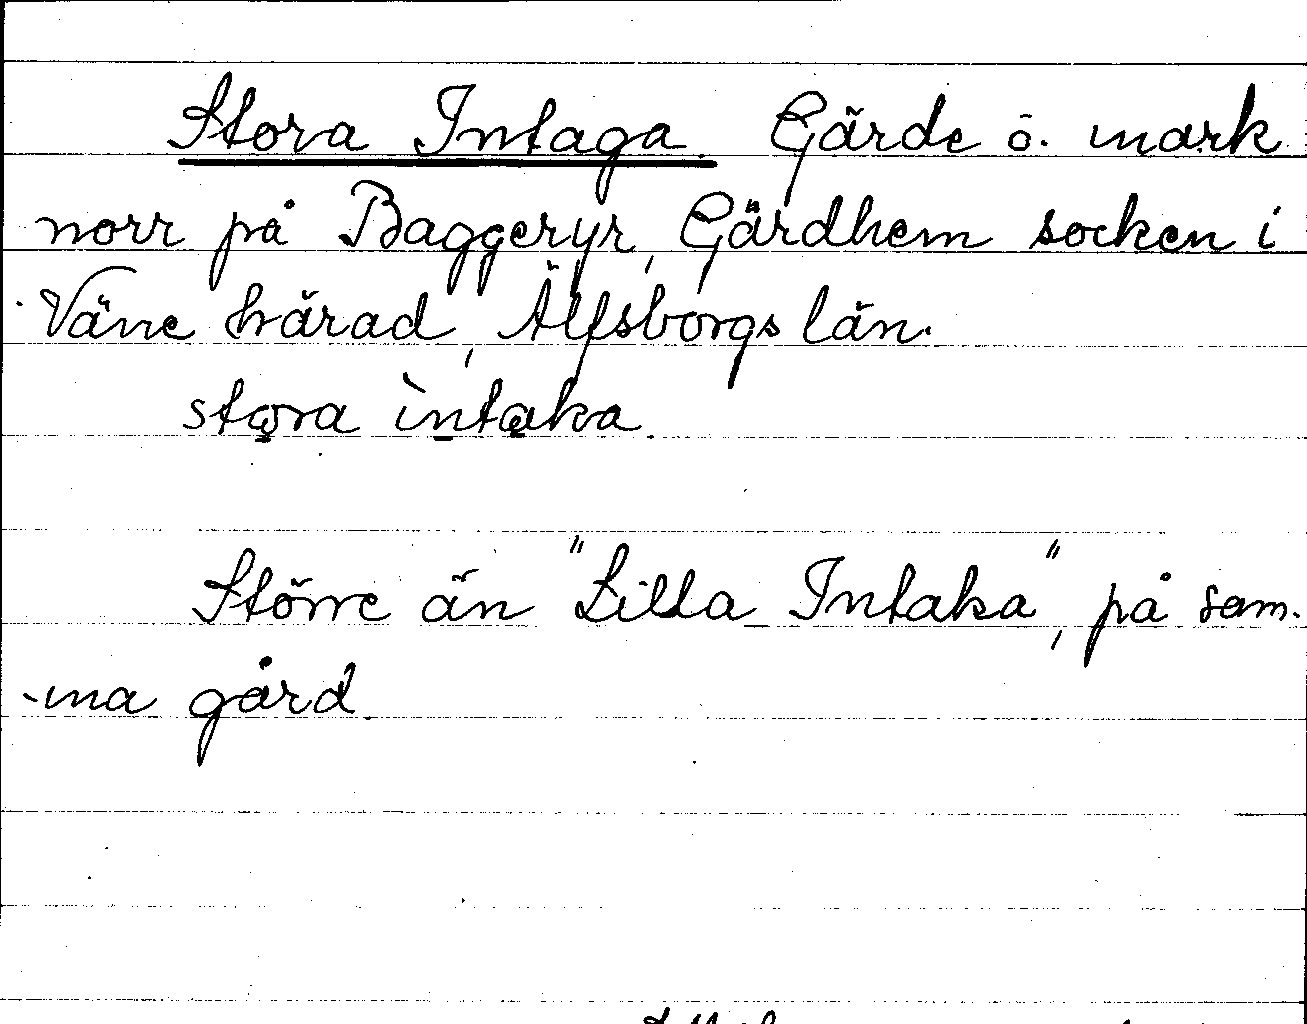 Stora Intaga. Gärde o. mark
norr på Baggeryr, Gärdhem socken i
Väne härad, Älfsborgs län.
stora ìntaka.
Större än "Lilla Intaka", på sam-
-ma gård.